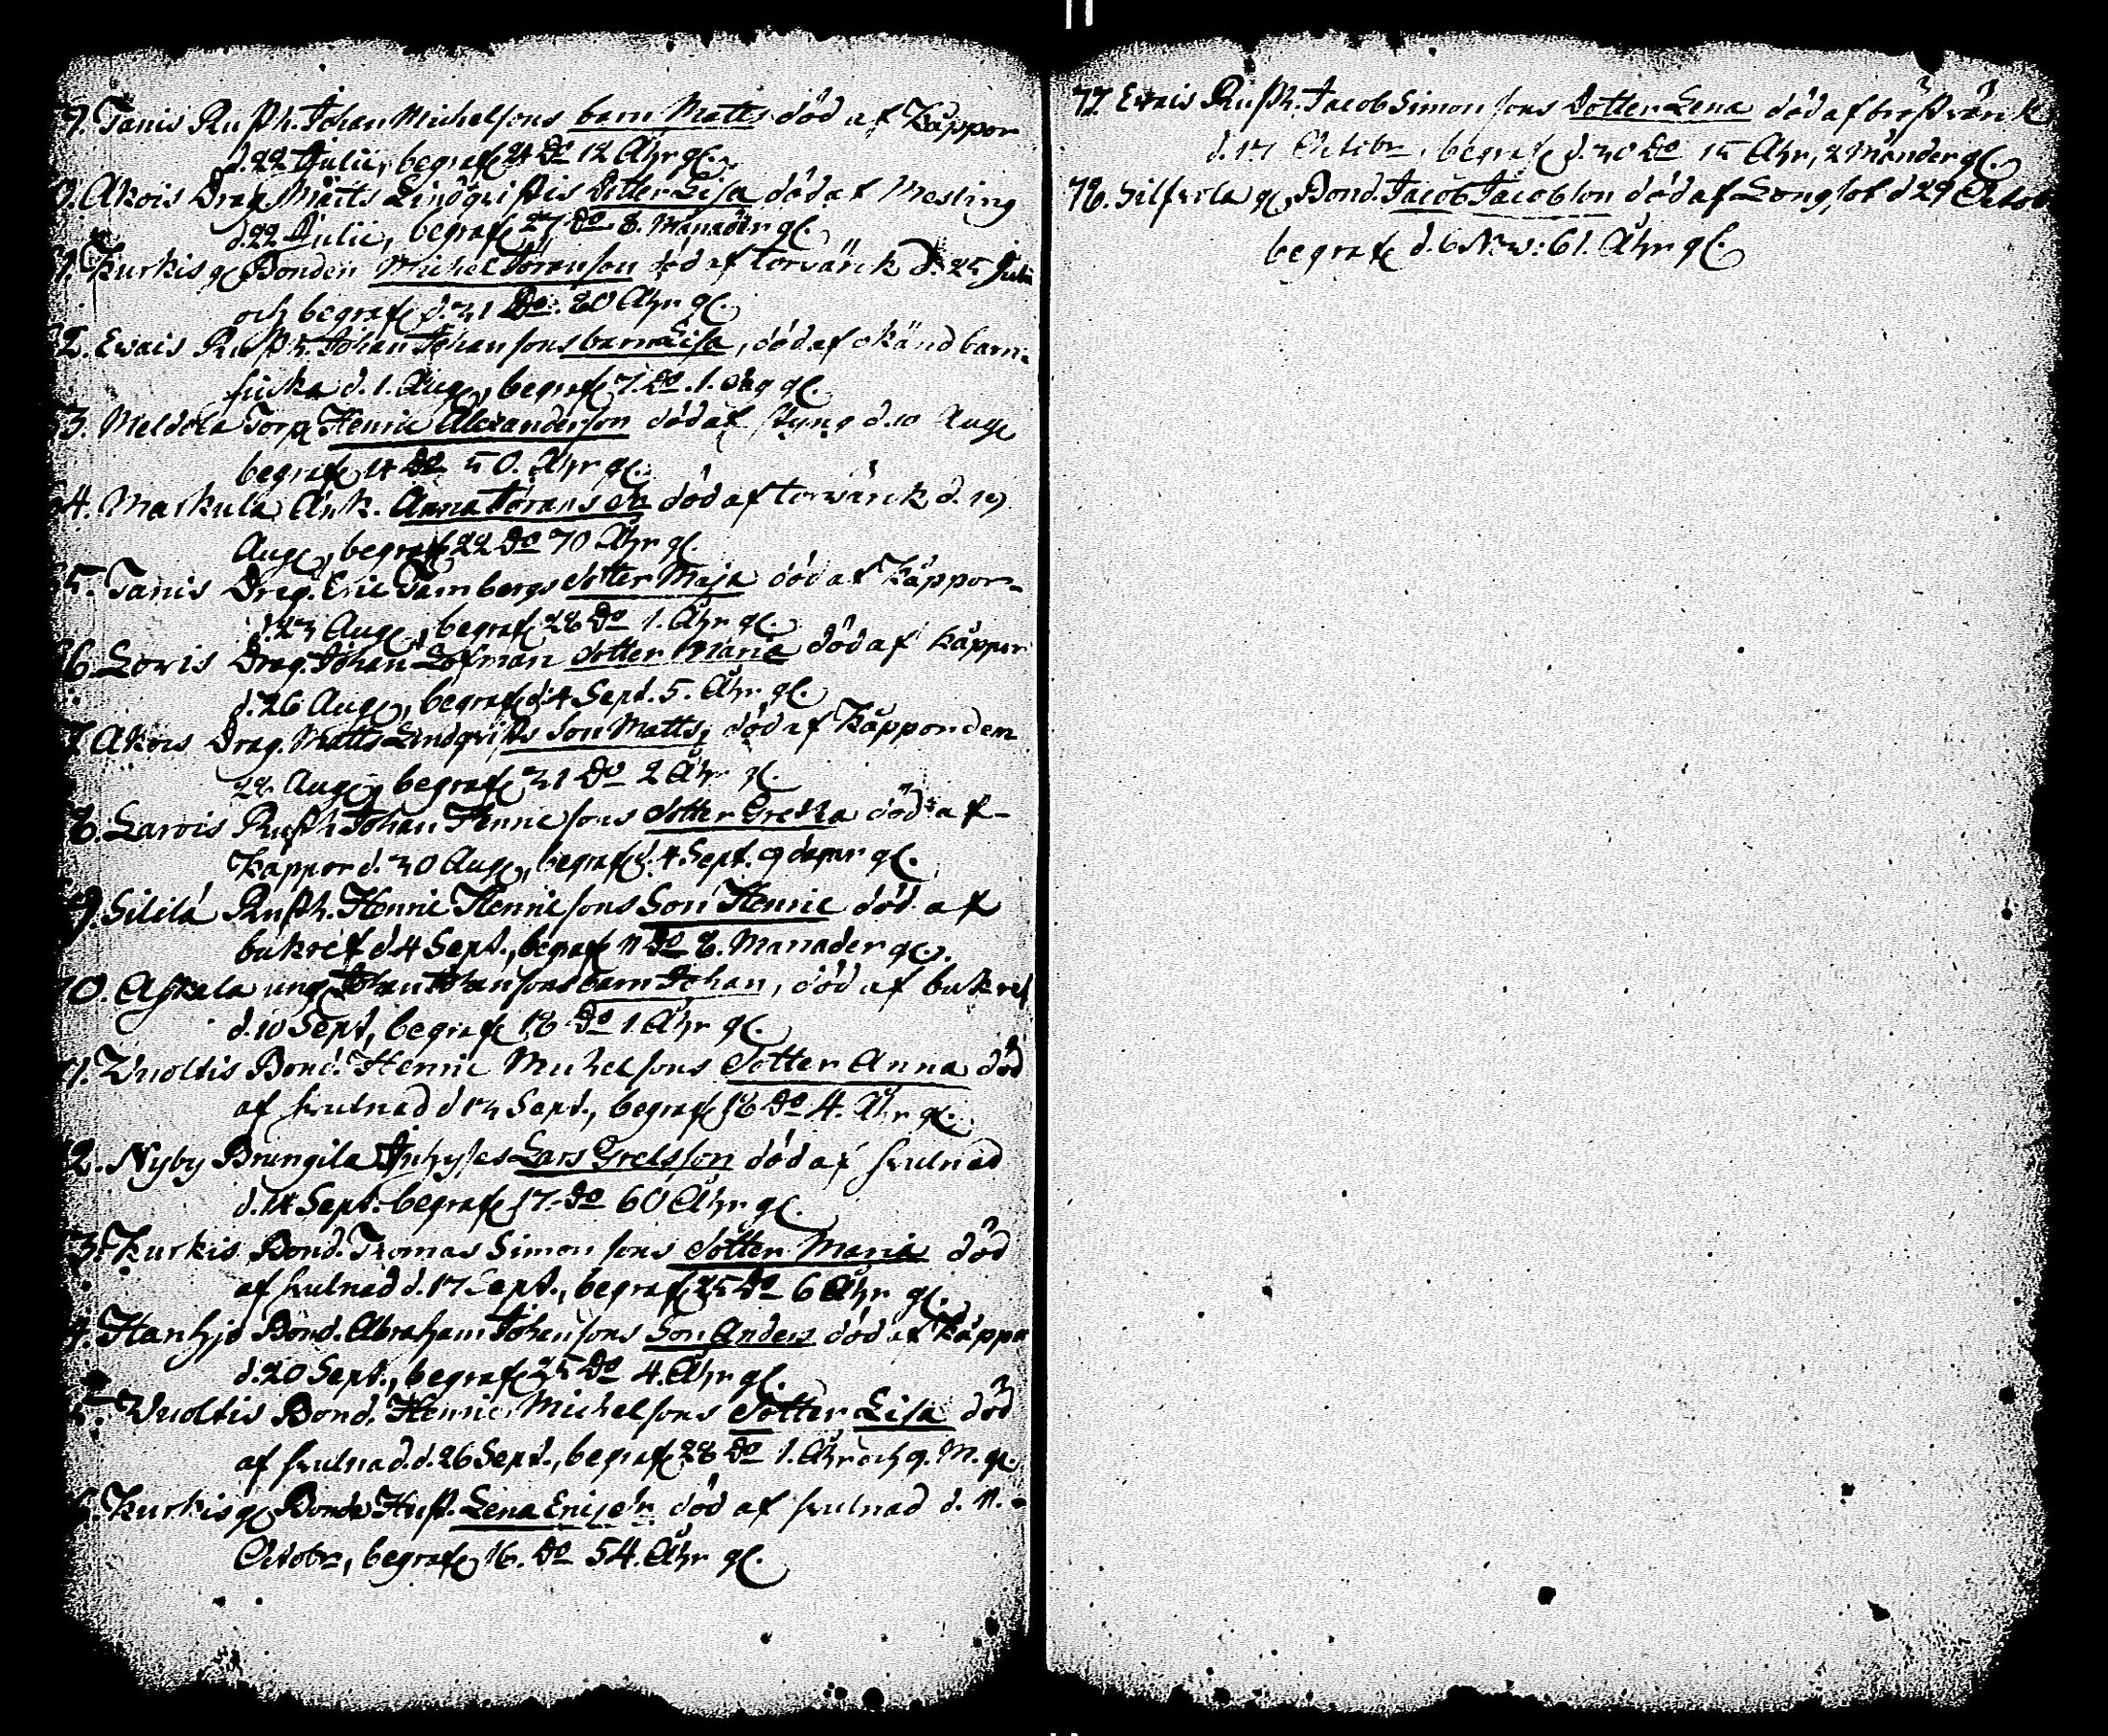 9. Tanis Rusth. Johan Michelsons barn Matts död af Kåppor
d. 22 Julii, begrafe 24 Do 12 Åhr gl.
0. Akois Drag. Matts Lindqvistis dotter Lisa död af Mesling
d. 22 Julii, begrafe 27 Do 8. Månader gl.
1. Kurkis gl. Bonden Michel Göranson död af torvärck d. 25 Julii
och begrafe d. 31 Do. 80 Åhr gl.
2. Ewais Rusth. Johan Johansons barn Lisa, död af okänd barn-
siuka d. 1. Aug., begrafe 7. Do. 1. dag gl.
3. Meldola Torp. Henric Alexanderson död af styng d. 10 Aug.
begrafe 14 Do 50. Åhr gl.
4. Markula Änk. Anna Göransdr död af torwärck d. 19
Aug., begrafe 22 Do 70 Åhr gl.
5. Tanis Drag. Eric Tambergs dotter Maja död af Kåppor
d. 23 Aug., begrafe 28 Do 1. Åhr gl.
6. Loris Drag. Johan Löfman dotter Maria död af Kåppor
d. 26 Aug., begrafe d. 4 Sept. 5. Åhr gl.
7. Akois Drag. Matts Lindqvists Son Matts, död af Kåppor den
28 Aug., begrafe 31 Do 2 Åhr gl.
8. Larois Rusth. Johan Henricsons dotter Greta död af
Kåppor d. 30 Aug., begrafe d. 4 Sept. 9 dagar gl.
9. Sililä Rusth. Henric Henricsons Son Henric död af
bukref d 4 Sept., begrafe 11 Do 8. Månader gl.
70. Askala ung Johan Johansons barn Johan, död af bukref
d. 10 Sept, begrafe 18 Do 1 Åhr gl.
1. Wuoltis Bond. Henric Michelsons dotter Anna död
af swulnad d 13 Sept., begrafe 18 Do 4. Åhr gl.
2. Nyby Brungila Inhyses Lars Grelsson död af swulnad
d. 14 Sept. begrafe 17. Do 60 Åhr gl.
3. Kurkis Bond. Thomas Simonsons dotter Maria död
af swulnad d. 17 Sept., begrafe 25 Do 6 Åhr gl.
4. Hanhjo Bond. Abraham Johansons Son Anders död af Kåppor
d. 20 Sept., begrafe 25 Do 4. Åhr gl.
5. Wuoltis Bond. Henric Michelsons dotter Lisa död
af swulnad. d. 26 Sept., begrafe 28 Do 1. Åhr och 9. M. gl.
6. Kurkis gl. Bonde Hust. Lena Ericsdr. död af swulnad d. 11.
Octobr, begrafe 16. Do 54. Åhr gl.
77. Ewais Rusth. Jacob Simonsons Dotter Lena död af bröstvärck
d. 17 Octobr, begrafe d. 30 Do 15 Åhr, 2 Månder gl.
78. Silfvola gl. Bond. Jacob Jacobson död af Lungsot d 29 Octob
begrafe d. 6 Nov: 61. Åhr gl.